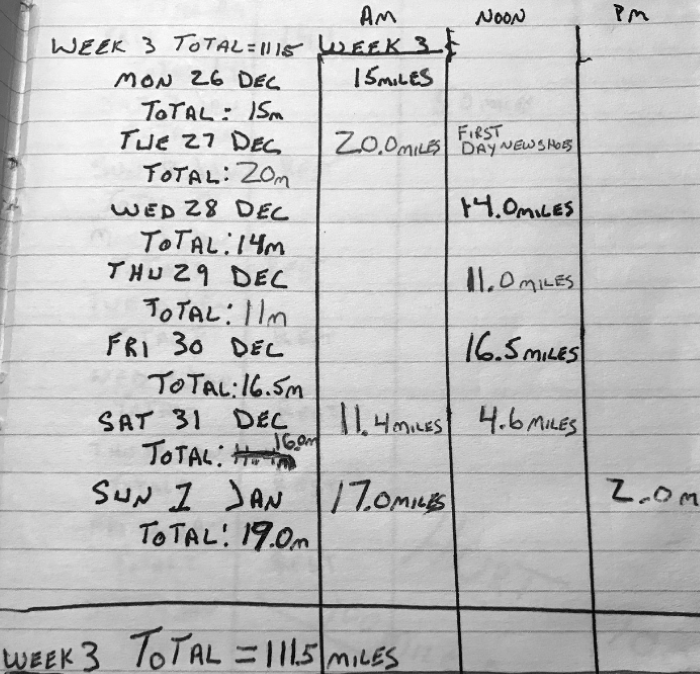 AM NOON PM
WEEK 3 TOTAL=111.5 WEEK 3
MON 26 DEC 15MILES
TOTAL: 15m
TUE 27 DEC 20.0MILES FIRST
DAY NEW SHOES
TOTAL: 20m
WED 28 DEC 14.0MILES
TOTAL: 14m
THU 29 DEC 11.0 MILES
TOTAL: 11m
FRI 30 DEC 16.5 MILES
TOTAL: 16.5m
SAT 31 DEC 11.4 MILES 4.6 MILES
TOTAL: 16.0m
SUN 1 JAN 17.0MILES 2.0 m
TOTAL: 19.0m
WEEK 3 TOTAL = 111.5 MILES